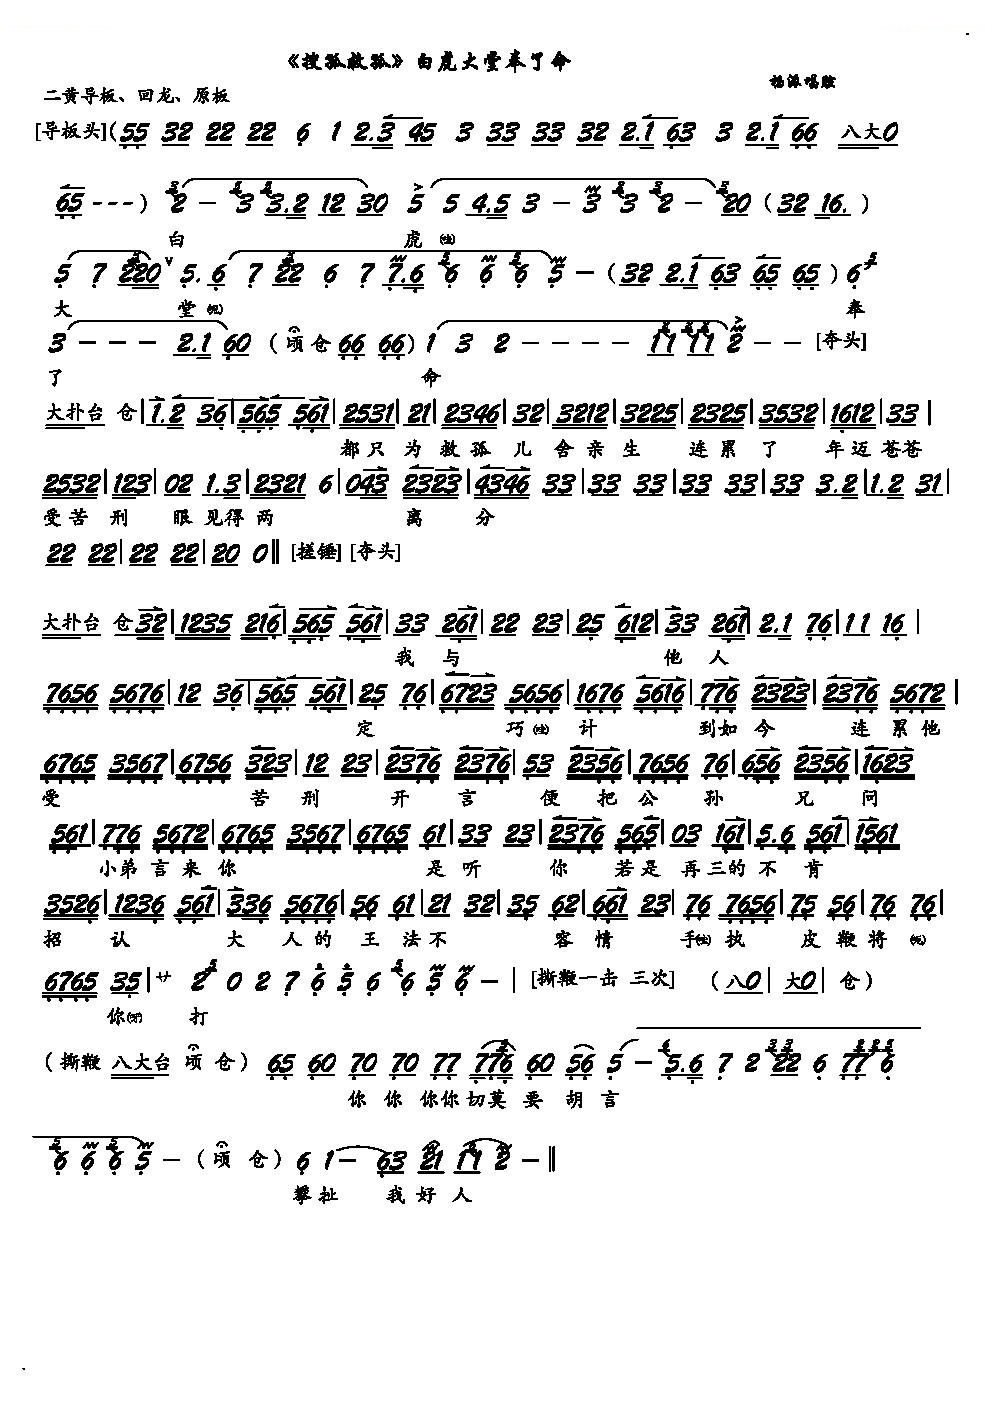 《搜孤救孤》白虎大堂奉了命
杨派唱腔
二黄导板、回龙、原板
[导板头](55 32 22 22 6 1 2.3 45 3 33 33 32 2.1 63 3 2.1 66 八大0
65 - - - ) 2 - 3 3.2 12 30 5 5 4.5 3 - 3 3 2 - 20 (32 16. )
白 虎
5 7 220 5. 6 7 22 6 7 7.6 6 6 6 5 - (32 2.1 63 65 65 ) 6
大 堂 奉
3 - - - 2.1 60 (顷 仓 66 66) 1 3 2 - - - - 11 11 2 - - [夺头]
了 命
大扑台 仓|1.2 36|565 561|2531|21|2346|32|3212|3225|2325|3532|1612|33|
都 只 为 救 孤 儿 舍 亲 生 连 累 了 年 迈 苍苍
2532|123|02 1.3|2321 6|043 2323|4346 33|33 33|33 33|33 3.2|1.2 31|
受苦 刑 眼 见得 两 离 分
22 22|22 22|20 0‖[搓锤] [夺头]
大扑台 仓32|1235 216|565 561|33 261|22 23|25 612|33 261|2.1 76|11 16|
我 与 他 人
7656 5676|12 36|565 561|25 76|6723 5656|1676 5616|776 2323|2376 5672|
定 巧 计 到如 今 连 累 他
6765 3567|6756 323|12 23|2376 2376|53 2356|7656 76|656 2356|1623
受 苦 刑 开 言 便 把 公 孙 兄 问
561|776 5672|6765 3567|6765 61|33 23|2376 565|03 161|5.6 561|1561
小弟 言 来 你 是 听 你 若是 再 三的 不 肯
3526|1236 561|336 5676|56 61|21 32|35 62|661 23|76 7656|75 56|76 76|
招 认 大 人 的 王 法不 容 情 手 执 皮 鞭 将
6765 35|サ 2 0 2 7 6 5 6 6 5 6 - | [撕鞭一击 三次] (八0|大0|仓)
你 打
(撕鞭 八大台 顷 仓) 65 60 70 70 77 776 60 56 5 - 5.6 7 2 22 6 77 6
你 你 你你 切莫 要 胡 言
6 6 6 5 - (顷 仓) 6 1 - 63 21 11 2 - ‖
攀 扯 我 好 人